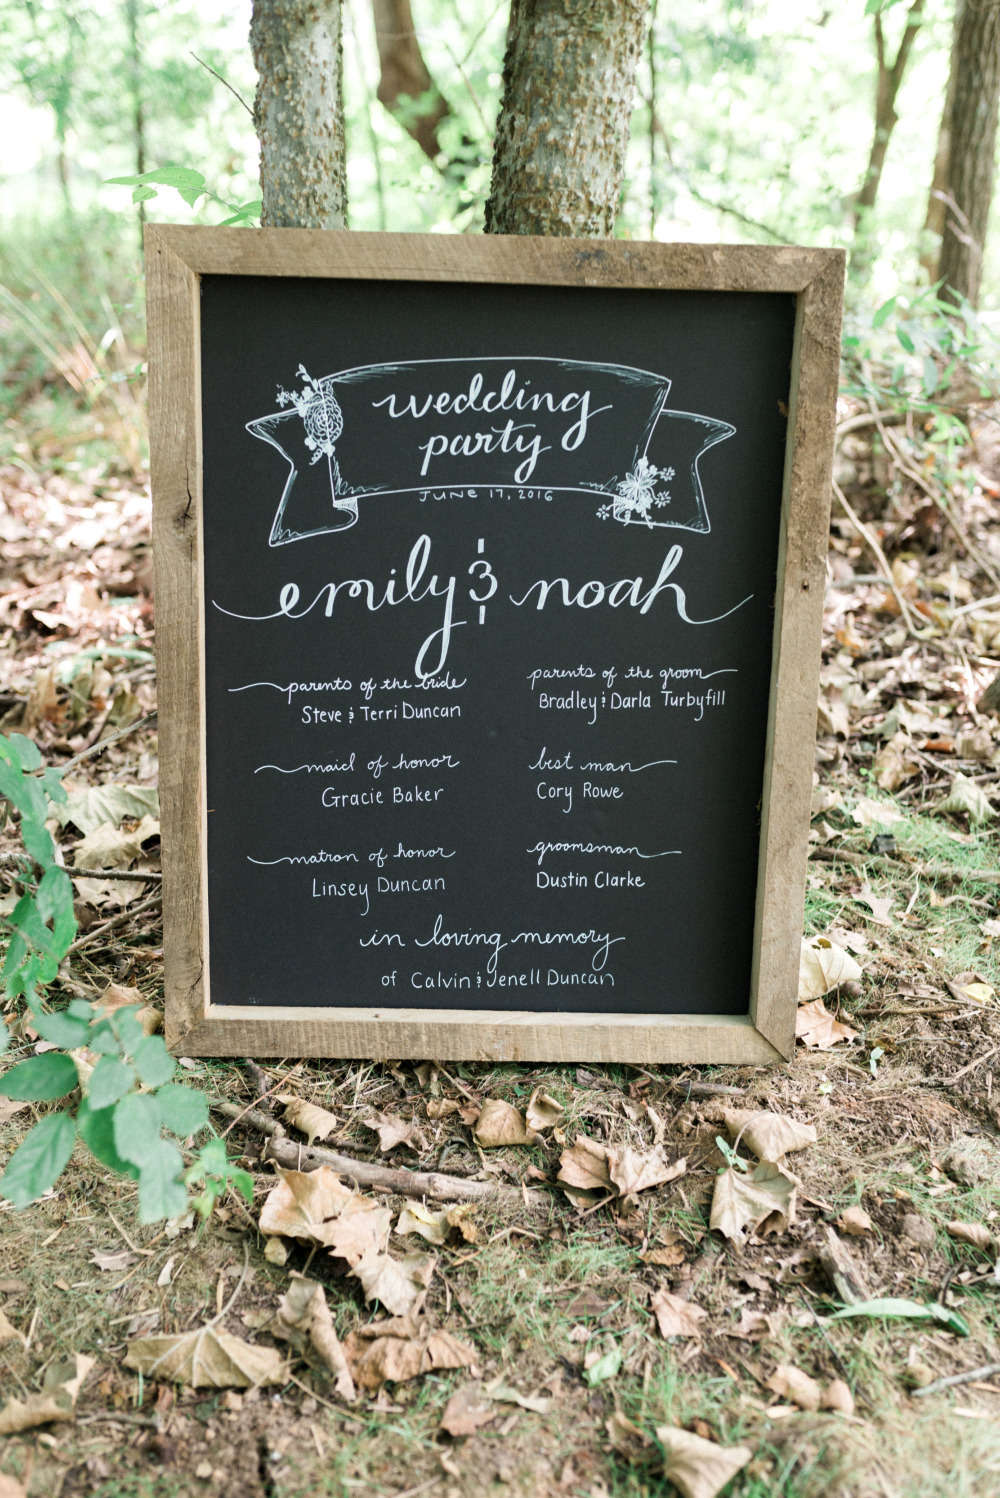 wedding
party
JUNE 17, 2016
emily & noah
parents of the bride
Steve & Terri Duncan
parents of the groom
Bradley & Darla Turbyfill
maid of honor
Gracie Baker
best man
Cory Rowe
matron of honor
Linsey Duncan
groomsman
Dustin Clarke
in loving memory
of Calvin & Jenell Duncan